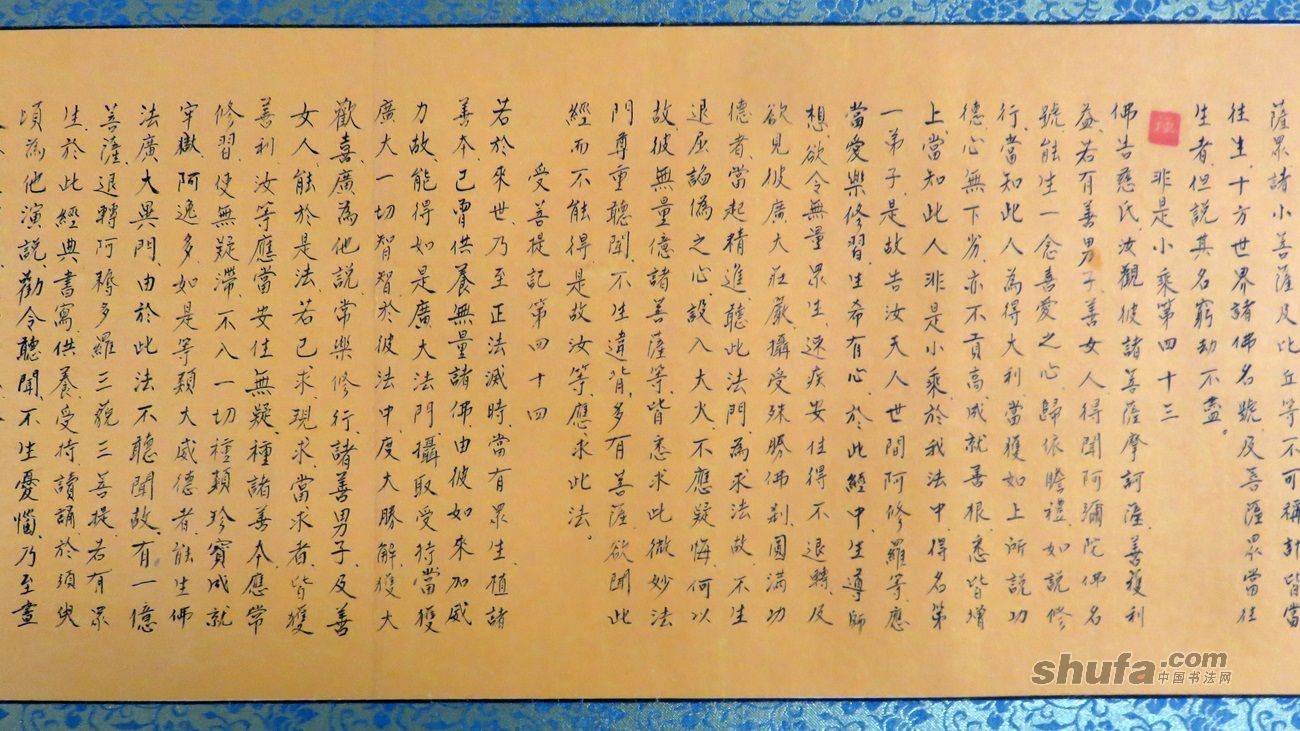 薩眾諸小菩薩及比丘等不可稱計皆當
往生十方世界諸佛名號及菩薩眾當往
生者但說其名窮劫不盡。
非是小乘第四十三
佛告慈氏汝觀彼諸菩薩摩訶薩、善獲利
益、若有善男子、善女人、得聞阿彌陀佛名
號、能生一念喜愛之心、歸依瞻禮、如說修
行、當知此人為得大利、當獲如上所說功
德、心無下劣、亦不貢高、成就善根、悉皆增
上、當知此人非是小乘、於我法中、得名第
一弟子、是故告汝天人世間阿修羅等、應
當愛樂修習、生希有心、於此經中、生導師
想、欲令無量眾生、速疾安住得不退轉、及
欲見彼廣大莊嚴、攝受殊勝佛剎、圓滿功
德者、當起精進、聽此法門、為求法故、不生
退屈諂偽之心、設入大火、不應疑悔、何以
故、彼無量億諸菩薩等、皆悉求此微妙法
門、尊重聽聞、不生違背、多有菩薩、欲聞此
經而不能得、是故汝等、應求此法。
受菩提記第四十四
若於來世、乃至正法滅時、當有眾生、植諸
善本、已曾供養無量諸佛、由彼如來加威
力故、能得如是廣大法門、攝取受持、當獲
廣大一切智智、於彼法中、廣大勝解、獲大
歡喜、廣為他說、常樂修行、諸善男子、及善
女人、能於是法、若已求、現求、當求者、皆獲
善利、汝等應當安住無疑、種諸善本、應常
修習、使無疑滯、不入一切種類珍寶成就
牢獄、阿逸多、如是等類大威德者、能生佛
法廣大異門、由於此法不聽聞故、有一億
菩薩、退轉阿耨多羅三藐三菩提、若有眾
生、於此經典、書寫、供養、受持、讀誦、於須臾
頃為他演說、勸令聽聞、不生憂惱、乃至晝
shufa.com
中国书法网